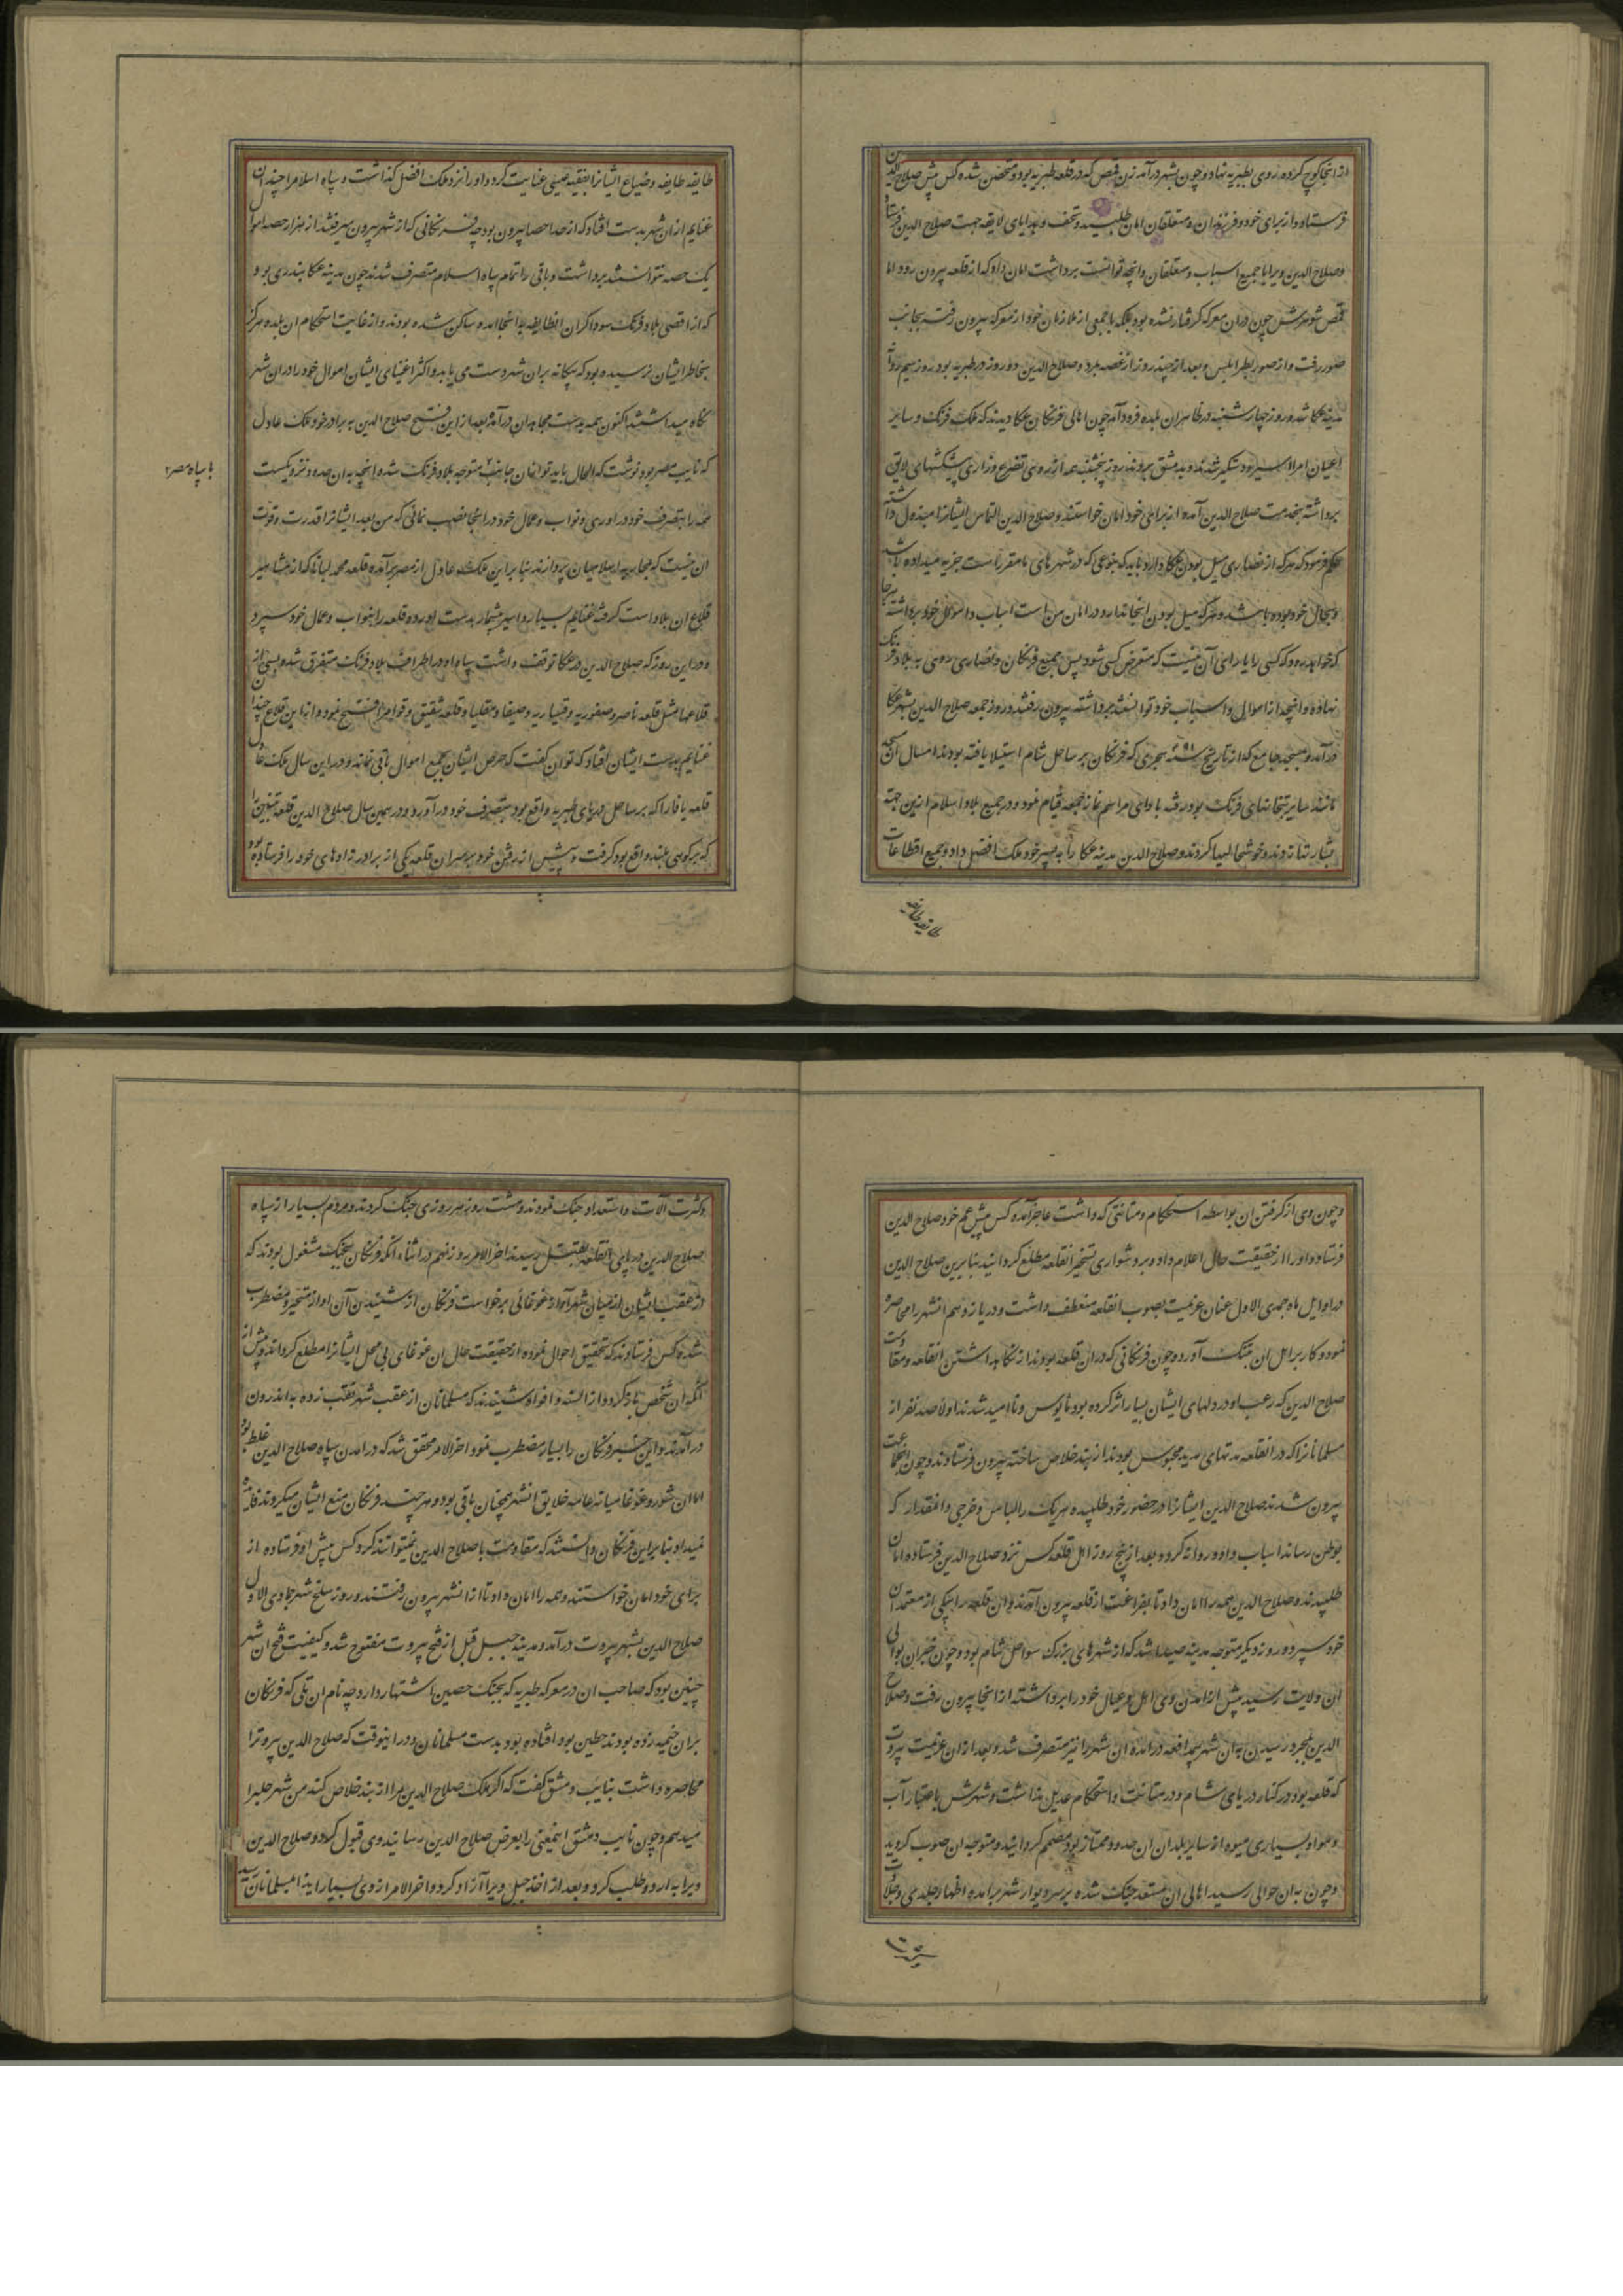 از انجا کوچ کرده روی بطبریه نهاد و چون بشهر درآمد زن قمص که در قلعه طبریه بود و متحصن شده کس پیش صلاح الدین
فرستاد و از برای خود و فرزندان و متعلقان امان طلبید و تحف و هدایای لایقه جهت صلاح الدین فرستاد
و صلاح الدین ویرا با جمیع اسباب و متعلقان و انچه توانست برداشت امان داد که از قلعه بیرون رود اما
قمص شوهرش چون دران معرکه گرفتار نشده بود بلکه با جمعی از ملازمان خود از معرکه بیرون رفت بجانب
صور رفت و از صور بطرابلس و بعد از چند روز از غصه بمرد و صلاح الدین دو روز در طبریه بود روز سیم روانه
مدینه عکا شد و روز چهارشنبه در ظاهر ان بلده فرود آمد چون اهالی فرنگان عکا دیدند که ملک فرنگ و سایر
اعیان امرا اسیر و دستگیر شدند و بدمشق بردند روز پنجشنبه همه از روی تضرع و زاری پیشکشهای لایق
برداشته بخدمت صلاح الدین آمده از برای خود امان خواستند و صلاح الدین التماس ایشانرا مبذول داشته
حکم فرمود که هرکه از نصاری میل بودن عکا دارد باید که بنوعی که در شهرهای ما مقرر است جزیه میداده باشد
و بحال خود بوده باشد و هرکه میل بودن انجا ندارد در امان من است اسباب و اموال خود برداشته بهرجا
که خواهد رود که کسی را یارای آن نیست که متعرض کسی شود پس جمیع فرنگان و نصاری روی به بلاد فرنگ
نهاده و انچه از اموال و اسباب خود توانستند برداشته بیرون رفتند و روز جمعه صلاح الدین بشهر عکا
درآمد و مسجد جامع که از تاریخ سنه ۴۹۱ هجری که فرنگان بر ساحل شام استیلا یافته بودند تا امسال ان مسجد
مانند سایر بتخانهای فرنگ بود رفته با دای مراسم نماز جمعه قیام نمود و در جمیع بلاد اسلام ازین جهة
بشارتها زدند و خوشحالیها کردند و صلاح الدین مدینه عکا را به پسر خود ملک افضل داد و جمیع اقطاعات
طایفه طایفه
طایفه طایفه و ضیاع ایشانرا بفقیه عیسی عنایت کرد و او را نزد ملک افضل گذاشت و سپاه اسلام را چندان
غنایم از ان شهر بدست افتاد که از حد احصا بیرون بود چه فرنگانی که از شهر بیرون میرفتند از هزار حصه اموال
یک حصه نتوانستند برداشت و باقی را تمام سپاه اسلام متصرف شدند چون مدینه عکا بندری بود
که از اقصی بلاد فرنگ سوداگران انطایفه به انجا امده ساکن شده بودند و از غایت استحکام ان بلده هرگز
بخاطر ایشان نرسیده بود که بیگانه بر ان شهر دست می یابد و اکثر اغنیای ایشان اموال خود را در ان شهر
نگاه میداشتند اکنون همه بدست مجاهدان درآمد و بعد از این فتح صلاح الدین به برادر خود ملک عادل
که نایب مصر بود نوشت که الحال باید تو از ان جانب متوجه بلاد فرنگ شده انچه به ان حدود نزدیکست
با سپاه مصر
همه را بتصرف خود در اوری و نواب و عمال خود در انجا نصب نمائی که من بعد ایشانرا قدرت و قوت
ان نیست که بمحاربه اسلامیان پردازند بنا بر این ملک عادل از مصر برآمده قلعه مجدلیابا که از مشاهیر
قلاع ان بلاد است گرفته غنایم بسیار و اسیر بیشمار بدست اورده قلعه را بنواب و عمال خود سپرد
و در این روز که صلاح الدین در عکا توقف داشت سپاه او در اطراف بلاد فرنگ متفرق شده بسی از
قلاعها مثل قلعه ناصره و صفوریه و قیساریه و حیفا و معلیا و قلعه شقیق و فوله را فتح نمود و از این قلاع چندان
غنایم بدست ایشان افتاد که توان گفت که حرص ایشان بجمع اموال باقی نماند و در این سال ملک عادل
قلعه یافا را که بر ساحل دریای طبریه واقع بود بتصرف خود در آورد و در همین سال صلاح الدین قلعه تبنین را
که بر کوهی بلند واقع بود گرفت و پیش از رفتن خود بر سر ان قلعه یکی از برادر زادهای خود را فرستاده بود
و چون وی از گرفتن ان بواسطه استحکام و متانتی که داشت عاجز آمده کس پیش عم خود صلاح الدین
فرستاد و او را از حقیقت حال اعلام داد و بر دشواری تسخیر انقلعه مطلع گردانید بنا برین صلاح الدین
در اوایل ماه جمدی الاول عنان عزیمت بصوب انقلعه منعطف داشت و در یازدهم انشهر را محاصره
نمود و کار بر اهل ان بتنگ آورد و چون فرنگانی که در ان قلعه بودند از نگاهداشتن انقلعه و مقاومت
صلاح الدین که رعب او در دلهای ایشان بسیار اثر کرده بود مایوس و ناامید شدند اولا صد نفر از
مسلمانانرا که در انقلعه مدتهای مدید محبوس بودند از بند خلاص ساخته بیرون فرستادند و چون انجماعت
بیرون شدند صلاح الدین ایشانرا در حضور خود طلبیده هریک را لباس و خرجی و انمقدار که
بوطن رساند اسباب داده روانه کرد و بعد از پنج روز اهل قلعه کس نزد صلاح الدین فرستاده امان
طلبیدند و صلاح الدین همه را امان داد تا بفراغت از قلعه بیرون آمدند و ان قلعه را بیکی از معتمدان
خود سپرده روز دیگر متوجه مدینه صیدا شد که از شهرهای بزرگ سواحل شام بود و چون خبر ان بوالی
ان ولایت رسید پیش از امدن وی اهل و عیال خود را برداشته از انجا بیرون رفت و صلاح
الدین بمجرد رسیدن به ان شهر بیمدافعه درامده ان شهر را نیز متصرف شد و بعد از ان عزیمت بیروت
که قلعه بود در کنار دریای شام و در متانت و استحکام عدیل نداشت و شهرش باعتبار آب
و هوا و بسیاری میوه از سایر بلدان ان حدود ممتاز بود مصمم گردانید و متوجه ان صوب گردید
و چون به ان حوالی رسید اهالی ان مستعد جنگ شده بر سر دیوار شهر برآمده اظهار جلدی و جلادت
و کثرت آلات و استعداد جنگ نمودند و هشت روز هر روزی جنگ کردند و مردم بسیار از سپاه
صلاح الدین در پای انقلعه بقتل رسیدند اخر الامر روز نهم در اثناء انکه فرنگان بجنگ مشغول بودند که
از عقب ایشان از میان شهر آواز غوغائی برخواست فرنگان از شنیدن آن اواز متحیر و مضطرب
شده کس فرستادند که تحقیق احوال نموده از حقیقت حال ان غوغای بی محل ایشانرا مطلع گرداند و پیش از
انکه ان شخص باز گردد از السنه و افواه شنیدند که مسلمانان از عقب شهر نقب زده به اندرون
درآمدند و این خبر فرنگان را بسیار مضطرب نمود و اخر الامر محقق شد که در امدن سپاه صلاح الدین غلط بود
اما ان شور و غوغا میانه عامه خلایق انشهر همچنان باقی بود و هر چند فرنگان منع ایشان میکردند فایده
نمیداد بنا براین فرنگان دانستند که مقاومت با صلاح الدین نمیتوانند کرد کس پیش او فرستاده از
برای خود امان خواستند و همه را امان داد تا از انشهر بیرون رفتند و روز سلخ شهر جمادی الاول
صلاح الدین بشهر بیروت درآمد و مدینه جبیل قبل از فتح بیروت مفتوح شد و کیفیت فتح ان شهر
چنین بود که صاحب ان در معرکه طبریه که بجنگ حصین اشتهار دارد چه نام ان تلی که فرنگان
بران خیمه زده بودند حطین بود افتاده بود بدست مسلمانان و در اینوقت که صلاح الدین بیروترا
محاصره داشت بنایب دمشق گفت که اگر ملک صلاح الدین مرا از بند خلاص کند من شهر جبلرا
میدهم و چون نایب دمشق اینمعنی را بعرض صلاح الدین رسانید وی قبول کرد و صلاح الدین
ویرا به اردو طلب کرد و بعد از اخذ جبل ویرا آزاد کرد و اخر الامر از وی بسیار ایذا بمسلمانان رسید